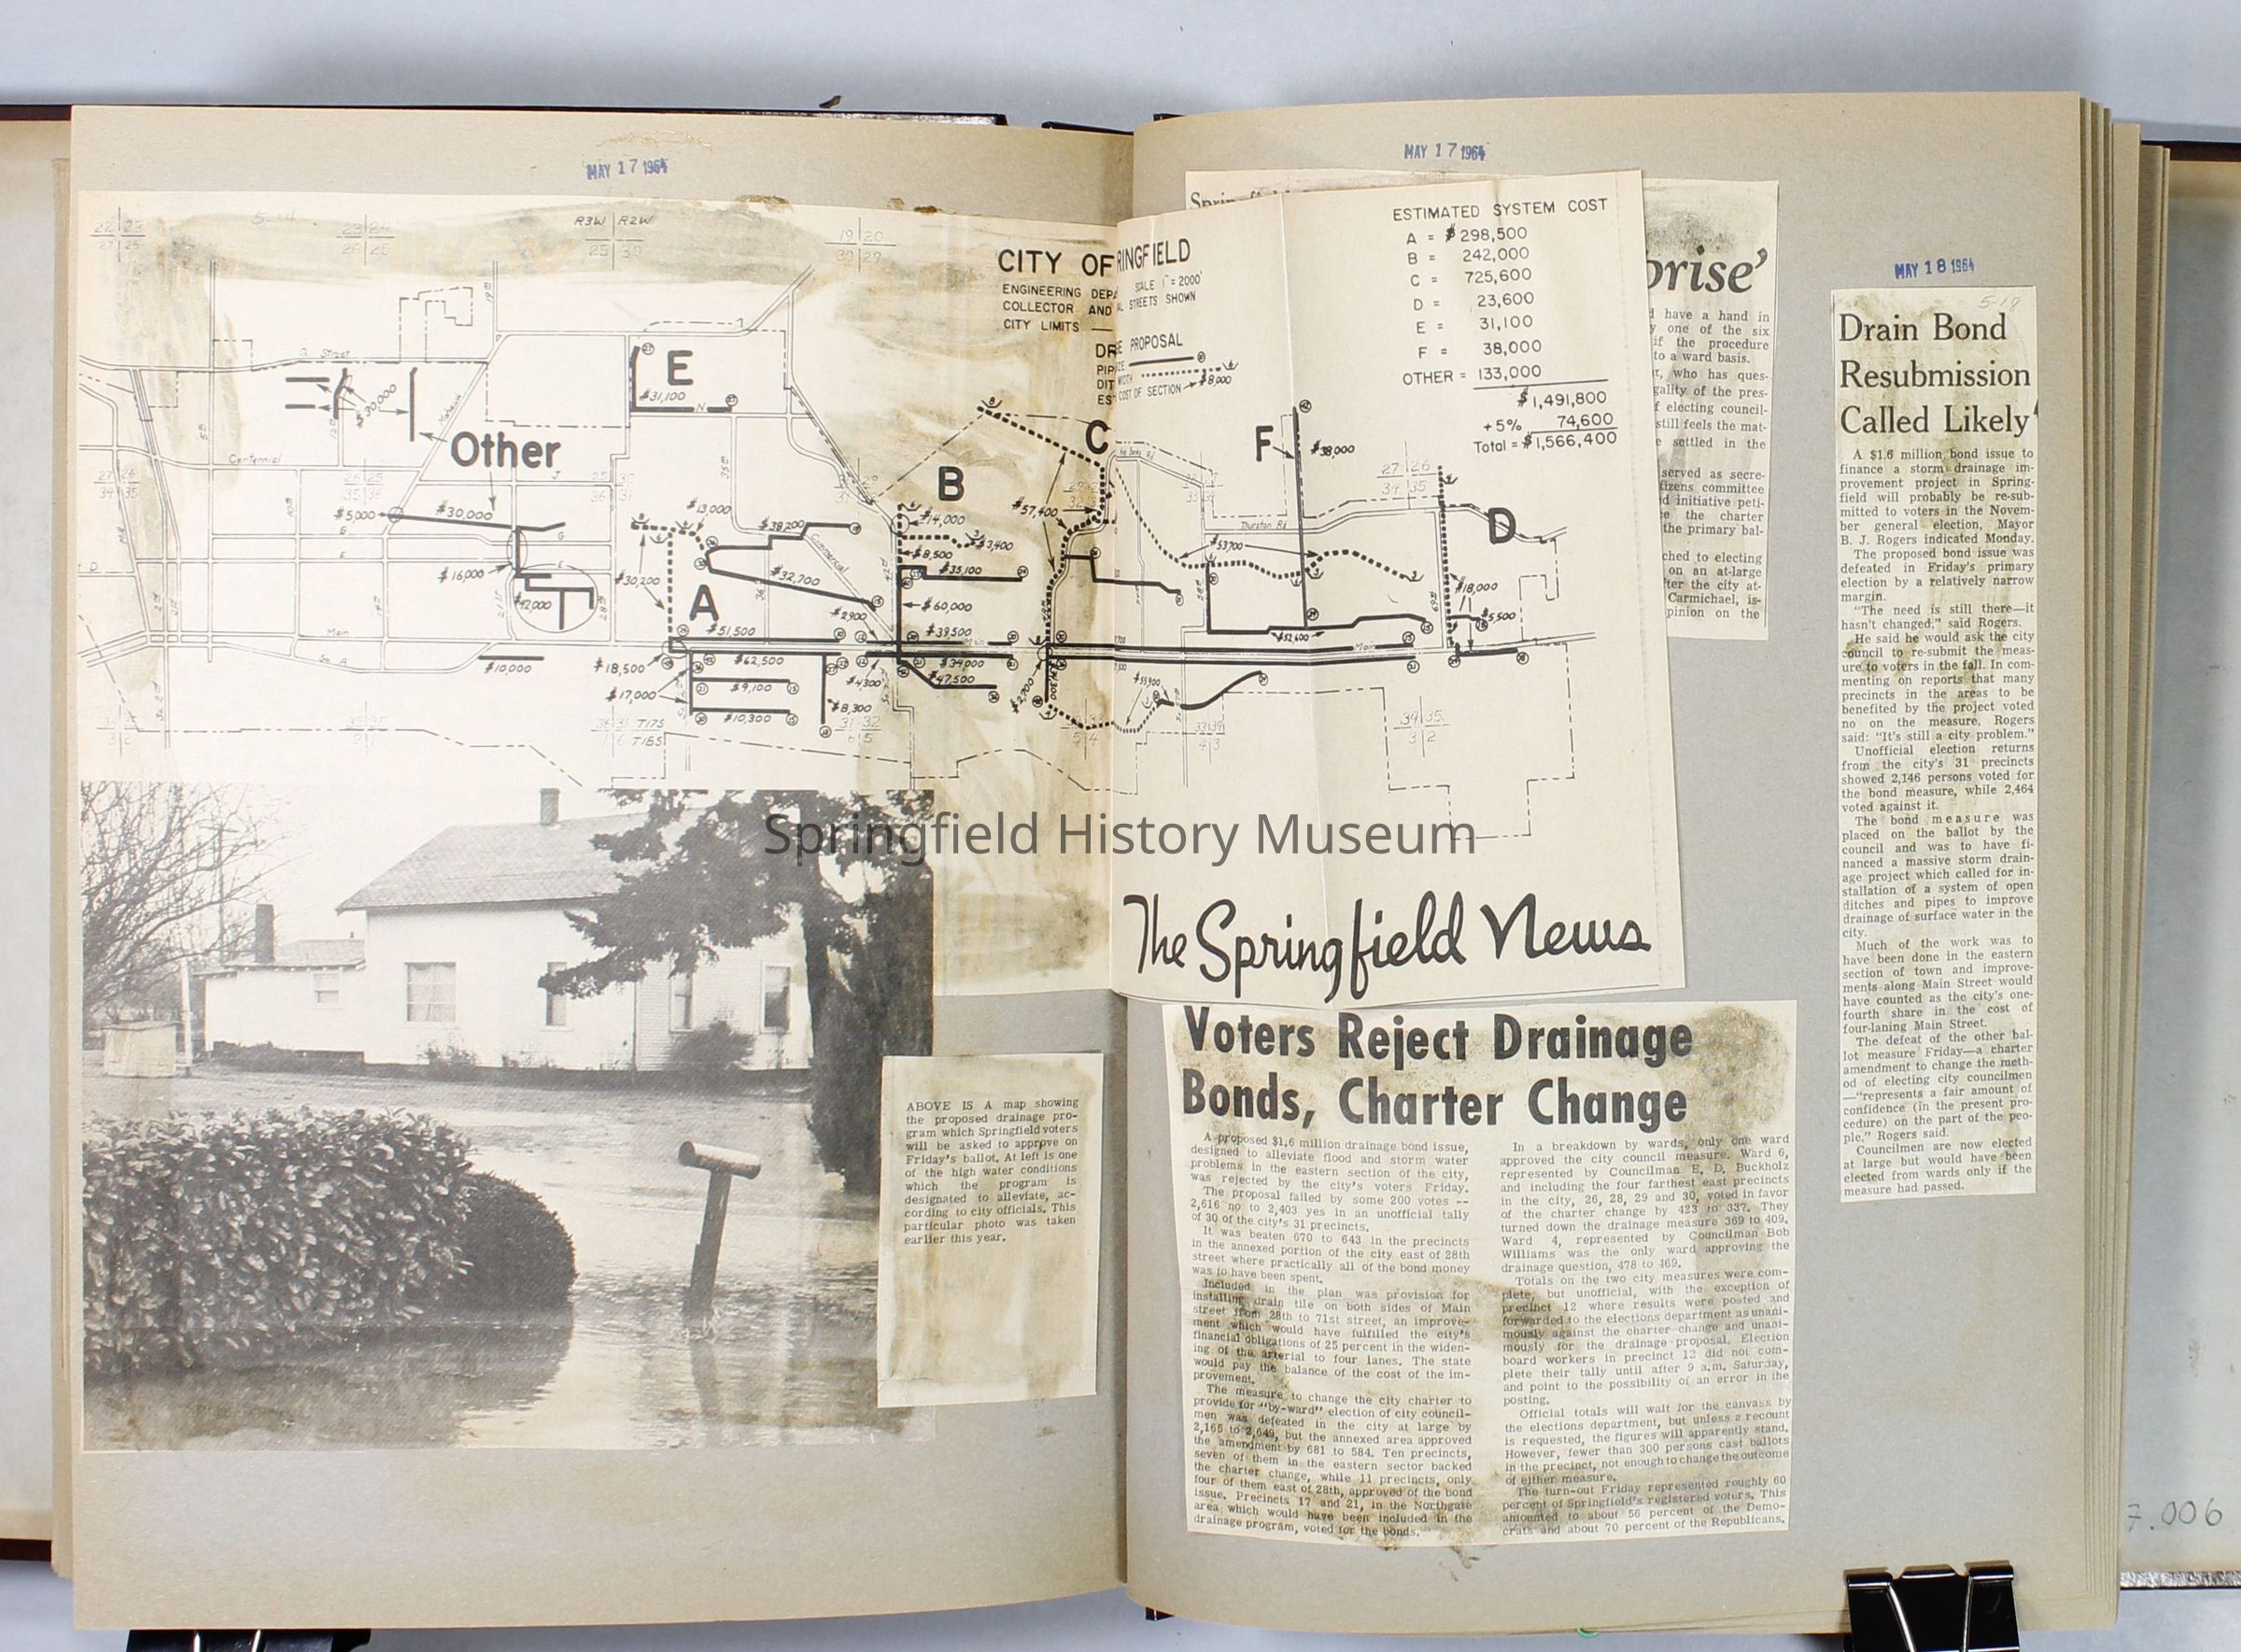 MAY 17 1964
MAY 17 1964
MAY 18 1964
R3W R2W
CITY OF
RINGFIELD
ENGINEERING DEPA
SCALE 1" = 2000'
COLLECTOR AND
L STREETS SHOWN
CITY LIMITS
DR
E PROPOSAL
PIP
DIT
EST
COST OF SECTION $8,000
ESTIMATED SYSTEM COST
A = $298,500
B = 242,000
C = 725,600
D = 23,600
E = 31,100
F = 38,000
OTHER = 133,000
$1,491,800
+5% 74,600
Total = $1,566,400
Q Street
E
$31,100
N
$30,000
Other
Centennial
J
C
B
F
$38,000
D
$5,000
$30,000
$13,000
$38,200
$14,000
$57,400
Thurston Rd
$3,400
$8,500
$53,700
$16,000
$30,200
$32,700
Commercial
$35,100
$18,000
A
$2,900
$60,000
$5,500
Main
$51,500
$39,500
Main
$52,600
Main
So. A
$10,000
$18,500
$62,500
$34,000
$17,000
$9,100
$4300
$47,500
$2,700
$55,900
$10,300
$8,300
T17S
T18S
Springfield History Museum
The Springfield News
ABOVE IS A map showing
the proposed drainage pro-
gram which Springfield voters
will be asked to approve on
Friday's ballot. At left is one
of the high water conditions
which the program is
designated to alleviate, ac-
cording to city officials. This
particular photo was taken
earlier this year.
Voters Reject Drainage
Bonds, Charter Change
A proposed $1,6 million drainage bond issue,
designed to alleviate flood and storm water
problems in the eastern section of the city,
was rejected by the city's voters Friday.
The proposal failed by some 200 votes --
2,616 no to 2,403 yes in an unofficial tally
of 30 of the city's 31 precincts.
It was beaten 670 to 643 in the precincts
in the annexed portion of the city east of 28th
street where practically all of the bond money
was to have been spent.
Included in the plan was provision for
installing drain tile on both sides of Main
street from 28th to 71st street, an improve-
ment which would have fulfilled the city's
financial obligations of 25 percent in the widen-
ing of the arterial to four lanes. The state
would pay the balance of the cost of the im-
provement.
The measure to change the city charter to
provide for "by-ward" election of city council-
men was defeated in the city at large by
2,165 to 2,649, but the annexed area approved
the amendment by 681 to 584. Ten precincts,
seven of them in the eastern sector backed
the charter change, while 11 precincts, only
four of them east of 28th, approved of the bond
issue. Precincts 17 and 21, in the Northgate
area which would have been included in the
drainage program, voted for the bonds.
In a breakdown by wards, only one ward
approved the city council measure. Ward 6,
represented by Councilman E. D. Buckholz
and including the four farthest east precincts
in the city, 26, 28, 29 and 30, voted in favor
of the charter change by 423 to 337. They
turned down the drainage measure 369 to 409.
Ward 4, represented by Councilman Bob
Williams was the only ward approving the
drainage question, 478 to 469.
Totals on the two city measures were com-
plete, but unofficial, with the exception of
precinct 12 where results were posted and
forwarded to the elections department as unani-
mously against the charter change and unani-
mously for the drainage proposal. Election
board workers in precinct 12 did not com-
plete their tally until after 9 a.m. Saturday,
and point to the possibility of an error in the
posting.
Official totals will wait for the canvass by
the elections department, but unless a recount
is requested, the figures will apparently stand.
However, fewer than 300 persons cast ballots
in the precinct, not enough to change the outcome
of either measure.
The turn-out Friday represented roughly 60
percent of Springfield's registered voters. This
amounted to about 56 percent of the Demo-
crats and about 70 percent of the Republicans.
prise'
have a hand in
one of the six
if the procedure
to a ward basis.
r, who has ques-
gality of the pres-
f electing council-
still feels the mat-
e settled in the
served as secre-
tizens committee
d initiative peti-
e the charter
the primary bal-
ched to electing
on an at-large
fter the city at-
Carmichael, is-
pinion on the
Drain Bond
Resubmission
Called Likely
A $1.6 million bond issue to
finance a storm drainage im-
provement project in Spring-
field will probably be re-sub-
mitted to voters in the Novem-
ber general election, Mayor
B. J. Rogers indicated Monday.
The proposed bond issue was
defeated in Friday's primary
election by a relatively narrow
margin.
"The need is still there—it
hasn't changed," said Rogers.
He said he would ask the city
council to re-submit the meas-
ure to voters in the fall. In com-
menting on reports that many
precincts in the areas to be
benefited by the project voted
no on the measure, Rogers
said: "It's still a city problem."
Unofficial election returns
from the city's 31 precincts
showed 2,146 persons voted for
the bond measure, while 2,464
voted against it.
The bond measure was
placed on the ballot by the
council and was to have fi-
nanced a massive storm drain-
age project which called for in-
stallation of a system of open
ditches and pipes to improve
drainage of surface water in the
city.
Much of the work was to
have been done in the eastern
section of town and improve-
ments along Main Street would
have counted as the city's one-
fourth share in the cost of
four-laning Main Street.
The defeat of the other bal-
lot measure Friday—a charter
amendment to change the meth-
od of electing city councilmen
—"represents a fair amount of
confidence (in the present pro-
cedure) on the part of the peo-
ple," Rogers said.
Councilmen are now elected
at large but would have been
elected from wards only if the
measure had passed.
7.006